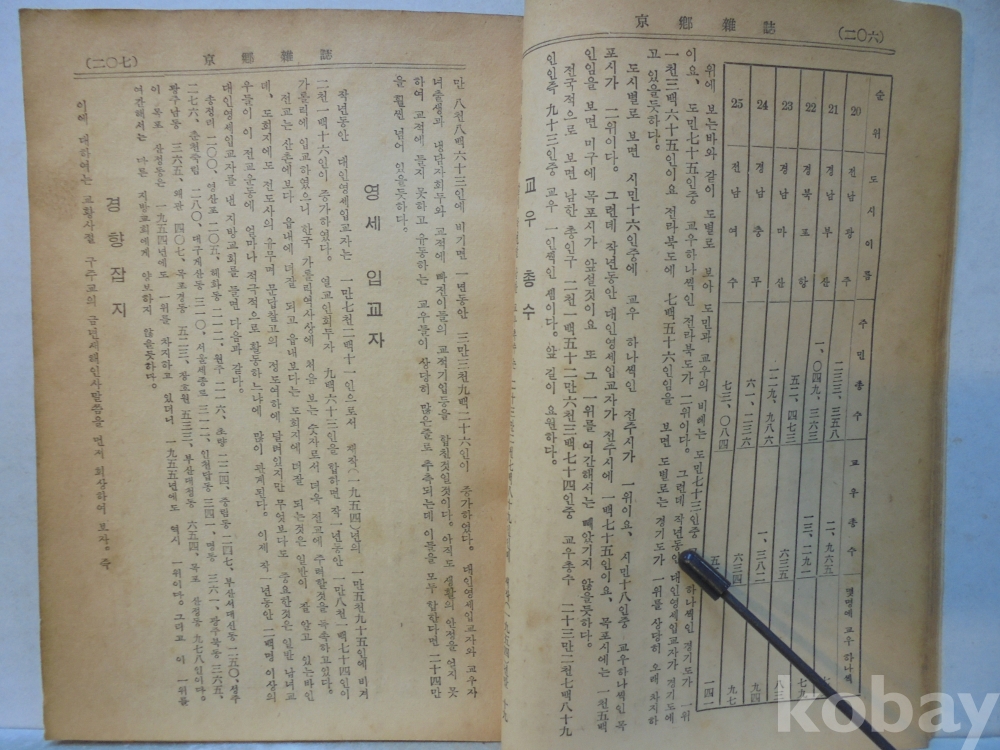 京鄕雜誌 (二〇六)
순위 도시이름 주민총수 교우총수 몇명에 교우 하나씩
20 전남 광주 二三三、三五八 二、九六五
21 경남 부산 一、〇四九、三六三 一三、二九一
22 경북 포항 五二、四七三 六三五
23 경남 마산 一二九、九八六 一、三八二
24 경남 충무 六一、二三六 六三四 九七
25 전남 여수 七三、〇八四 一四一
위에 보는바와 같이 도별로 보아 도민과 교우의 비례는 도민七十三인중 하나씩인 경기도가 一위
이요、 도민七十五인중 교우하나씩인 전라북도가 二위이다。 그런데 작년동안 대인영세입교자가 경기도에
一천三백六十五인이요 전라북도에 七백五十六인임을 보면 도별로는 경기도가 一위를 상당히 오래 차지하
고 있을듯하다。
도시별로 보면 시민十六인중에 교우 하나씩인 전주시가 一위이요、 시민十八인중 교우하나씩인 목
포시가 二위이다。 그런데 작년동안 대인영세입교자가 전주시에 一백七十五인이요、 목포시에는 一천五백
인임을 보면 미구에 목포시가 앞설것이요 또 그 一위를 여간해서는 빼았기지 않을듯하다。
전국적으로 보면 남한 총인구 二천一백五十二만六천三백七十四인중 교우총수 二十三만二천七백八十九
인인즉 九十三인중 교우 一인씩인 셈이다。 앞 길이 요원하다。
교우 총수
京鄕雜誌 (二〇七)
만 八천八백六十三인에 비기면 一년동안 三만三천九백二十六인이 증가하였다。 대인영세입교자와 교우자
녀출생과 냉담자회두와 교적에 빠진이들의 교적기입등을 합친것일것이다。 아직도 생활의 안정을 얻지 못
하여 교적에 들지 못하고 유동하는 교우들이 상당히 많은줄로 추측되는데 이들을 모두 합한다면 二十四만
을 훨씬 넘어 있을듯하다。
영세 입교자
작년동안 대인영세입교자는 一만七천二백十一인으로서 재작(一九五四)년의 一만五천九十五인에 비겨
二천一백十六인이 증가하였다。 열교인회두자 九백六十三인을 합하면 작一년동안 一만八천一백七十四인이
가톨릭에 입교하였으니 한국 가톨릭역사상에 처음 보는 숫자로서 더욱 전교에 주력할것을 독촉하고있다。
전교는 산촌에보다 읍내에 더잘 되고 읍내보다는 도회지에 더잘 되는것은 일반이 잘 알고 있는바인
데、 도회지에도 전도사의 유무며 문답찰고의 정도여하에 달려있지만 무엇보다도 중요한것은 일반 남녀교
우들이 이 전교운동에 얼마나 적극적으로 활동하느냐에 많이 관계된다。 이제 작一년동안 二백명 이상의
대인영세입교자를 낸 지방교회를 들면 다음과 같다。
송정리 二〇〇、 영산포 二〇五、 혜화동 二一二、 원주 二一六、 초량 二二四、 중림동 二四七、 부산서대신동 二五〇、 청주
二七六、 춘천죽림 二八〇、 대구계산동 三一〇、 서울세종로 三一二、 인천답동 三四一、 명동 三六一、 광주북동 三六五、
광주남동 三六五、 왜관 四〇七、 목포경동 五二三、 장호원 五三三、 부산대청동 六五四、 목포 산정동 九七八인이다。
이 목포 산정동은 一九五四년에도 一위를 차지하고 있더니 一九五五년에도 역시 一위이다。 그리고 이 一위를
여간해서는 다른 지방교회에게 양보하지 않을듯하다。
경향잡지
이에 대하여는 교황사절 구주교의 금년새해인사말씀을 먼저 회상하여 보자。 즉
kobay